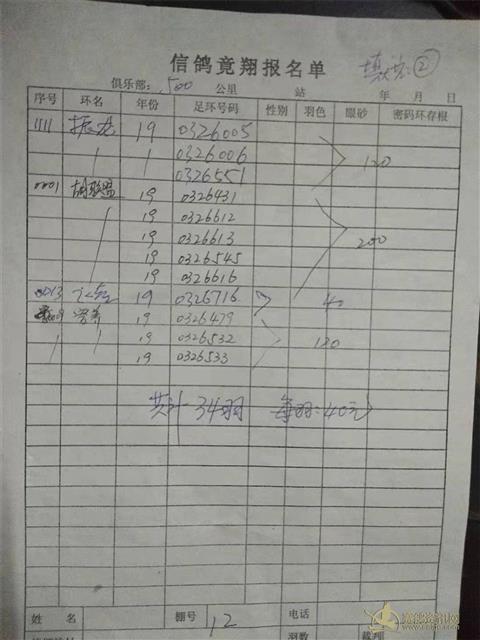 信鸽竟翔报名单
②
俱乐部： 500 公里 站 年 月 日
序号 环名 年份 足环号码 性别 羽色 眼砂 密码环存根
1111 振龙 19 0326005
0326006
0326551 120
0001 胡联盟 19 0326431
19 0326612
19 0326613 200
19 0326545
19 0326616
19 0326716 40
19 0326479
19 0326532 120
19 0326533
共计34羽 每羽：40元
姓 名 棚号 12 电话
羽数